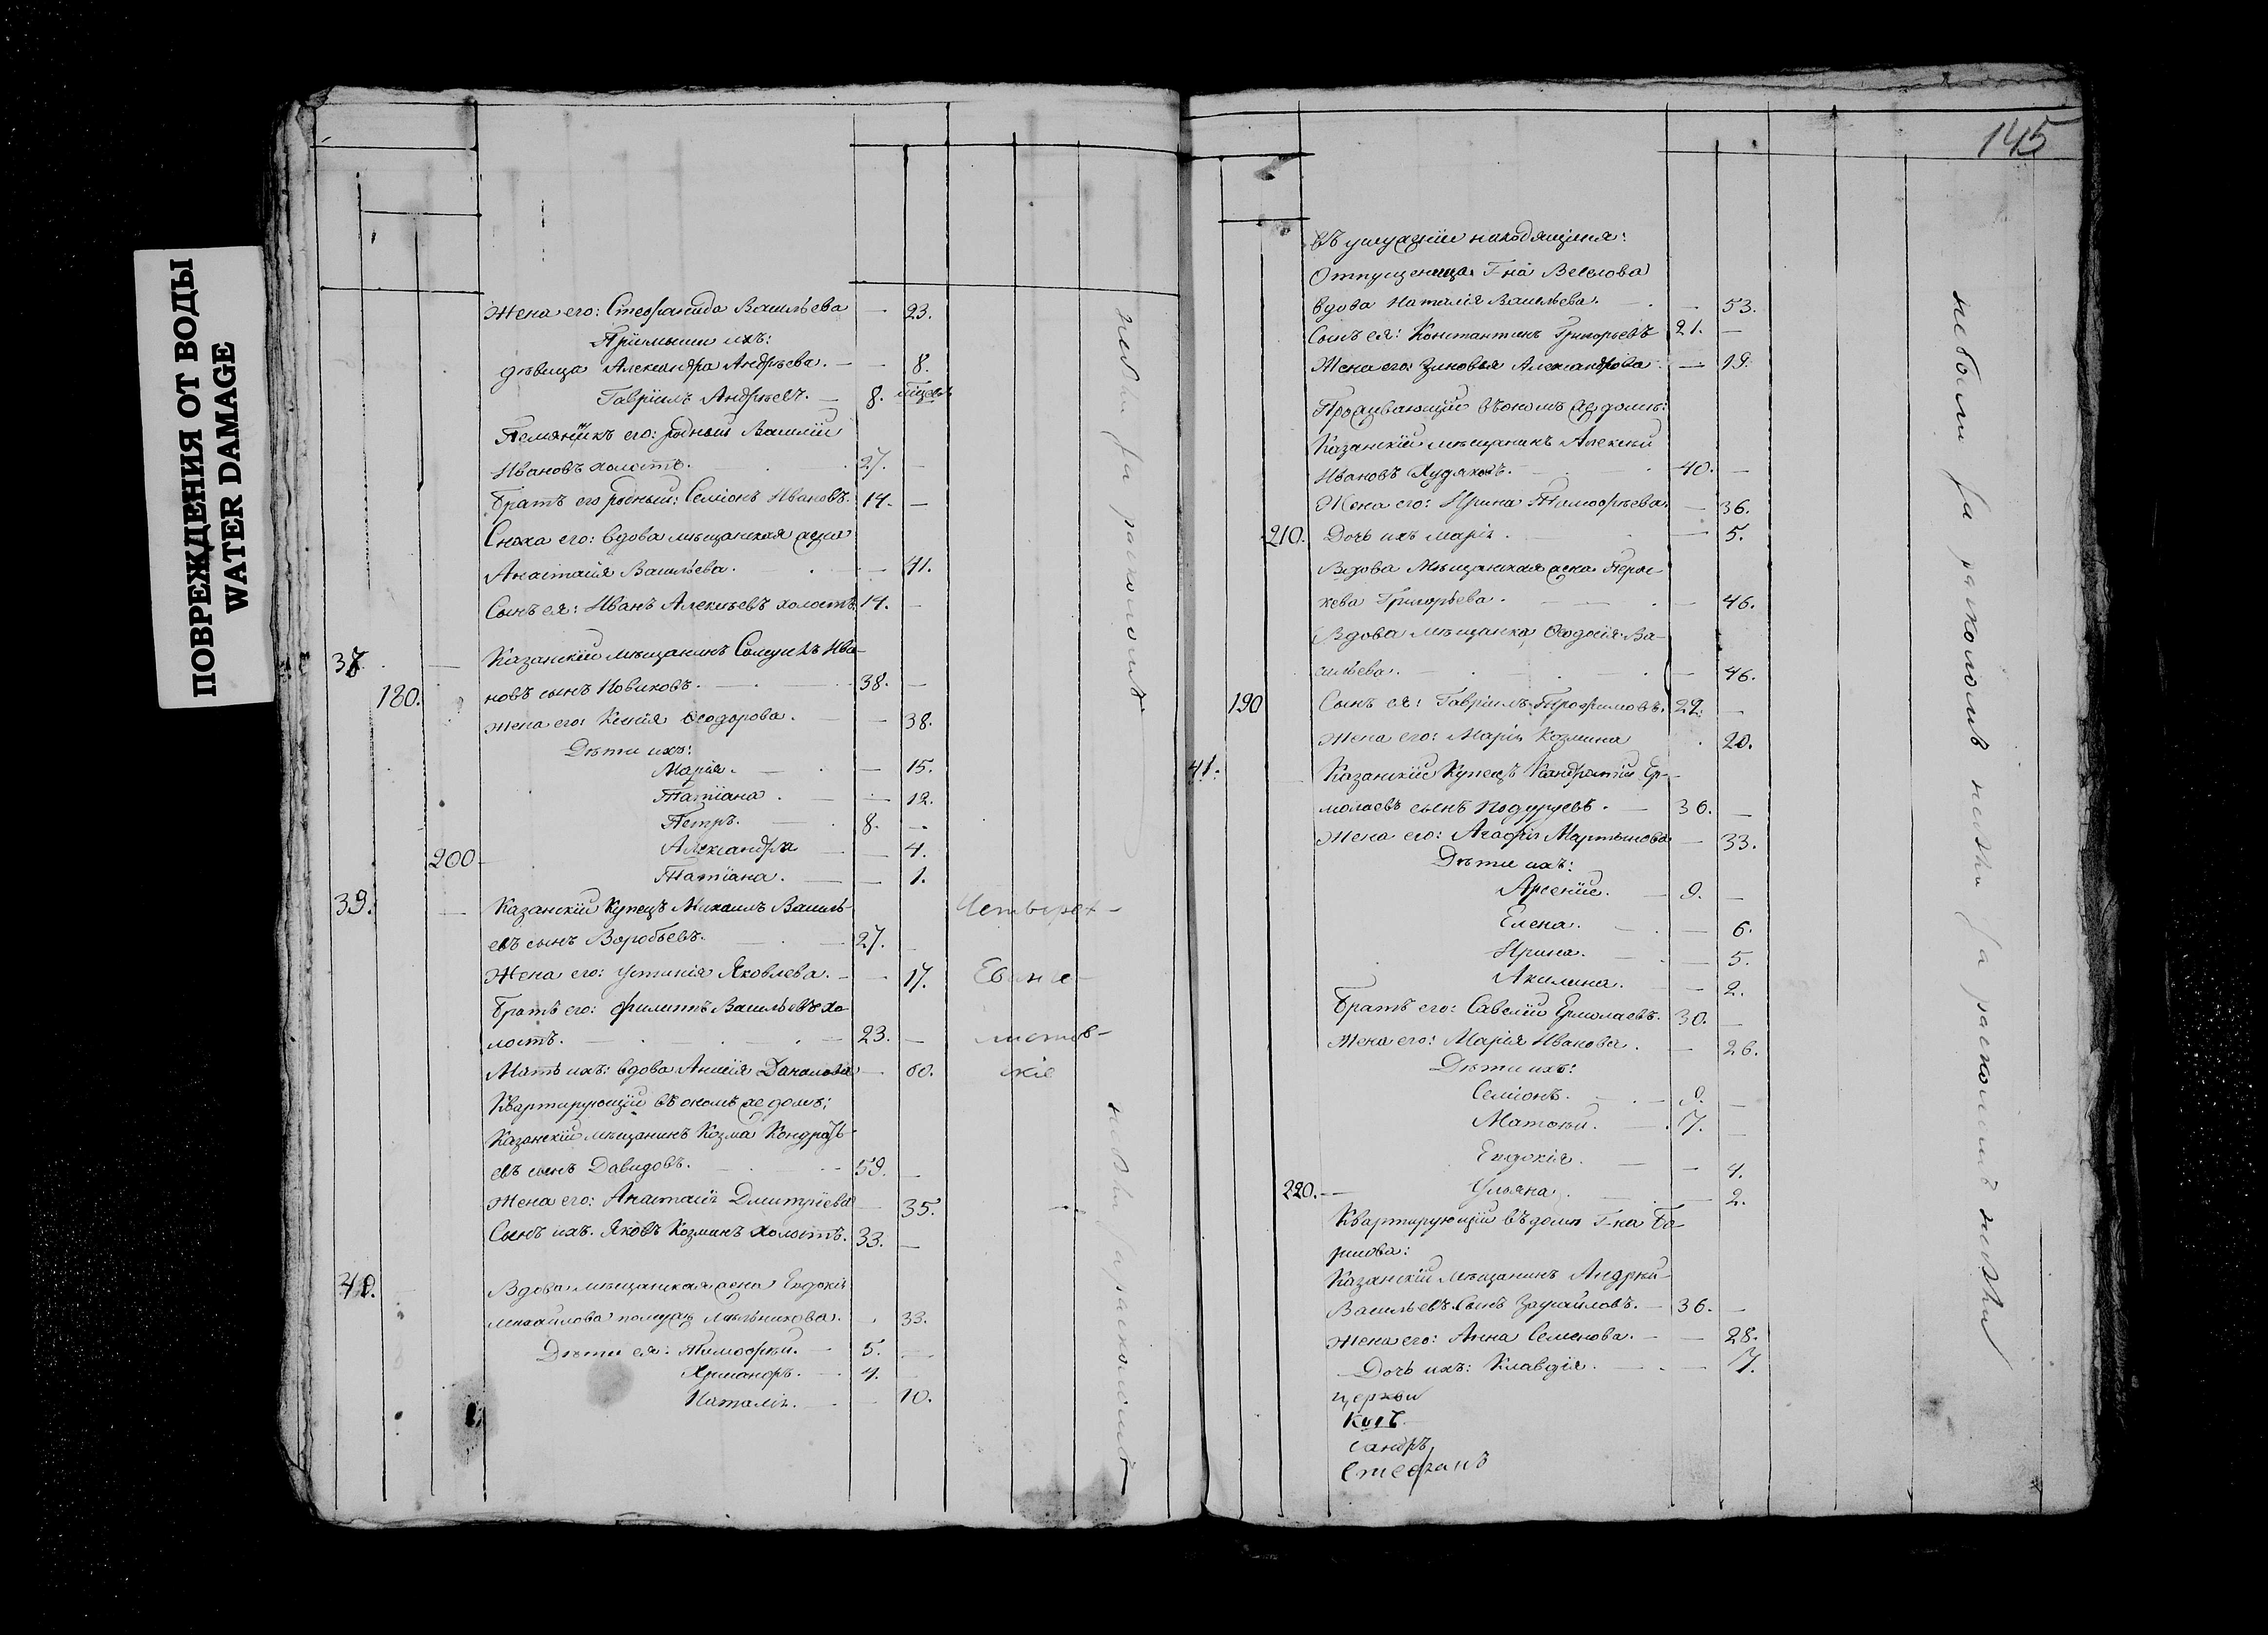 ПОВРЕЖДЕНИЯ ОТ ВОДЫ
WATER DAMAGE
Жена его: Стефанида Васильева — 23.
Пріимыши ихъ:
дѣвица Александра Андрѣева. — — 8.
Гавріилъ Андрѣевъ. — 8.
Племянникъ его: родный Василій
Ивановъ холостъ. 27. —
Братъ его родный: Семіонъ Ивановъ. 14. —
Сноха его: вдова мѣщанская жена
Анастасія Васильева. — 41.
Сынъ ея: Иванъ Алексѣевъ холостъ 14. —
Казанскій мѣщанинъ Ива-
180. новъ сынъ Новиковъ. — 38. —
Жена его: Ксенія Ѳеодорова. — 38.
Дѣти ихъ:
Марія. — 15.
Татіана. — 12.
Петръ. 8. —
200 Александра — 4.
Татіана. — 1.
39. Казанскій Купецъ Михаилъ Василь-
евъ сынъ Воробьевъ. 27. —
Жена его: Устинія Яковлева. — 17.
Братъ его: Филиппъ Васильевъ хо-
лостъ. 23. —
Мать ихъ: вдова Анисія — 60.
Квартирующій въ ономъ же домѣ:
Казанскій мѣщанинъ Козма Кондрать-
евъ сынъ Давидовъ. 59. —
Жена его: Анастасія Дмитріева — 35.
Сынъ ихъ. Яковъ Козминъ холостъ. 33. —
40. Вдова мѣщанская жена Евдокія
Михайлова Мыльникова. 33.
Дѣти ея: Тимофей. 5. —
4.
Наталія. — 10.
Четырех-
Еванге-
листов-
скіе
не были за расколомъ
не были за расколомъ
145
въ услуженіи находящіяся:
Отпущенница Гна
вдова Наталія Васильева. — 53.
Сынъ ея: Константинъ Григорьевъ 21. —
Жена его: Зиновья Александрова — 19.
Проживающій въ ономъ же домѣ:
Казанскій мѣщанинъ Алексѣй
Ивановъ Худяковъ. 40. —
Жена его: Ирина Тимофѣева — 36.
210. Дочь ихъ Марія. — 5.
Вдова Мѣщанская жена Парас-
кева Григорьева. — 46.
Вдова мѣщанка Ѳеодосія Ва-
сильева. — 46.
190 Сынъ ея: Гавріилъ Трофимовъ. 22. —
Жена его: Марія Козмина 20.
41. Казанскій Купецъ Кандратій Ер-
молаевъ сынъ Подуруевъ. — 36. —
Жена его: Агафія Мартынова — 33.
Дѣти ихъ:
Арсеній. — 9. —
Елена. — 6.
Ирина. — 5.
Акилина. — 2.
Братъ его: Савелій Ермолаевъ. 30. —
Жена его: Марія Иванова. — 26.
Дѣти ихъ:
Семіонъ. — 9. —
Матѳѣй. 7. —
Евдокія. — 4.
220. — Ульяна. — 2.
Квартирующій въ домѣ Г-на Бо-
Казанскій мѣщанинъ Андрей
Васильевъ сынъ Заусайловъ. — 36. —
Жена его: Анна Семенова. — 28.
Дочь ихъ: Клавдія. — 7.
церкви
сандръ
Стефанъ
не были за расколомъ не были за расколомъ не были